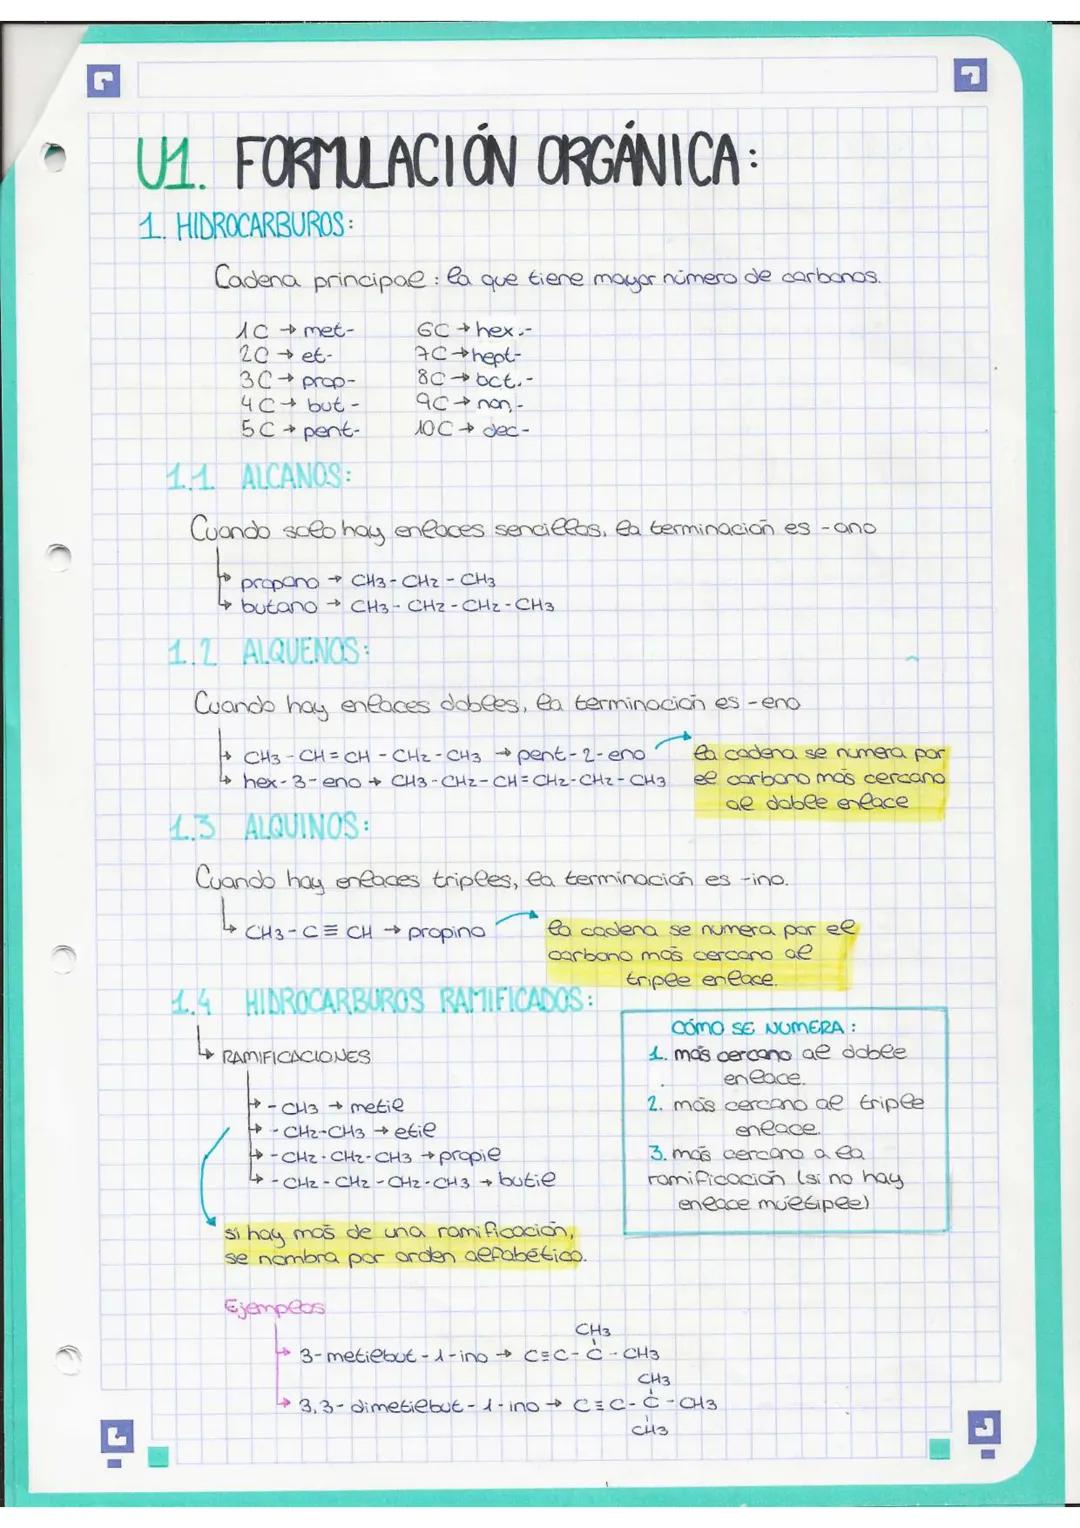 U1. FORMULACIÓN ORGÁNICA:
1. HIDROCARBUROS:
Cadena principal: la que tiene mayor número de carbonos.
1C → met-
2C → et-
3C → prop-
4C → but-
5C → pent-
6C → hex.-
7C → hept-
8C → oct.-
9C → non.-
10C → dec-
1.1 ALCANOS:
Cuando solo hay enlaces sencillos, la terminación es -ano
propano → CH3-CH2-CH3
butano → CH3-CH2-CH2-CH3
1.2 ALQUENOS:
Cuando hay enlaces dobles, la terminación es -eno
CH3-CH=CH-CH2-CH3 → pent-2-eno
hex-3-eno → CH3-CH2-CH=CH2-CH2-CH3
la cadena se numera por
el carbono más cercano
al doble enlace
1.3 ALQUINOS:
Cuando hay enlaces triples, la terminación es -ino.
CH3-C≡CH → propino
la cadena se numera por el
carbono más cercano al
triple enlace.
1.4 HIDROCARBUROS RAMIFICADOS:
RAMIFICACIONES
-CH3 → metil
-CH2-CH3 → etil
-CH2-CH2-CH3 → propil
-CH2-CH2-CH2-CH3 → butil
si hay más de una ramificación,
se nombra por orden alfabético.
CÓMO SE NUMERA:
1. más cercano al doble
enlace.
2. más cercano al triple
enlace.
3. más cercano a la
ramificación (si no hay
enlace múltiple)
Ejemplos
CH3
3-metilbut-1-ino → C≡C-C-CH3
CH3
3,3-dimetilbut-1-ino → C≡C-C-CH3
CH3